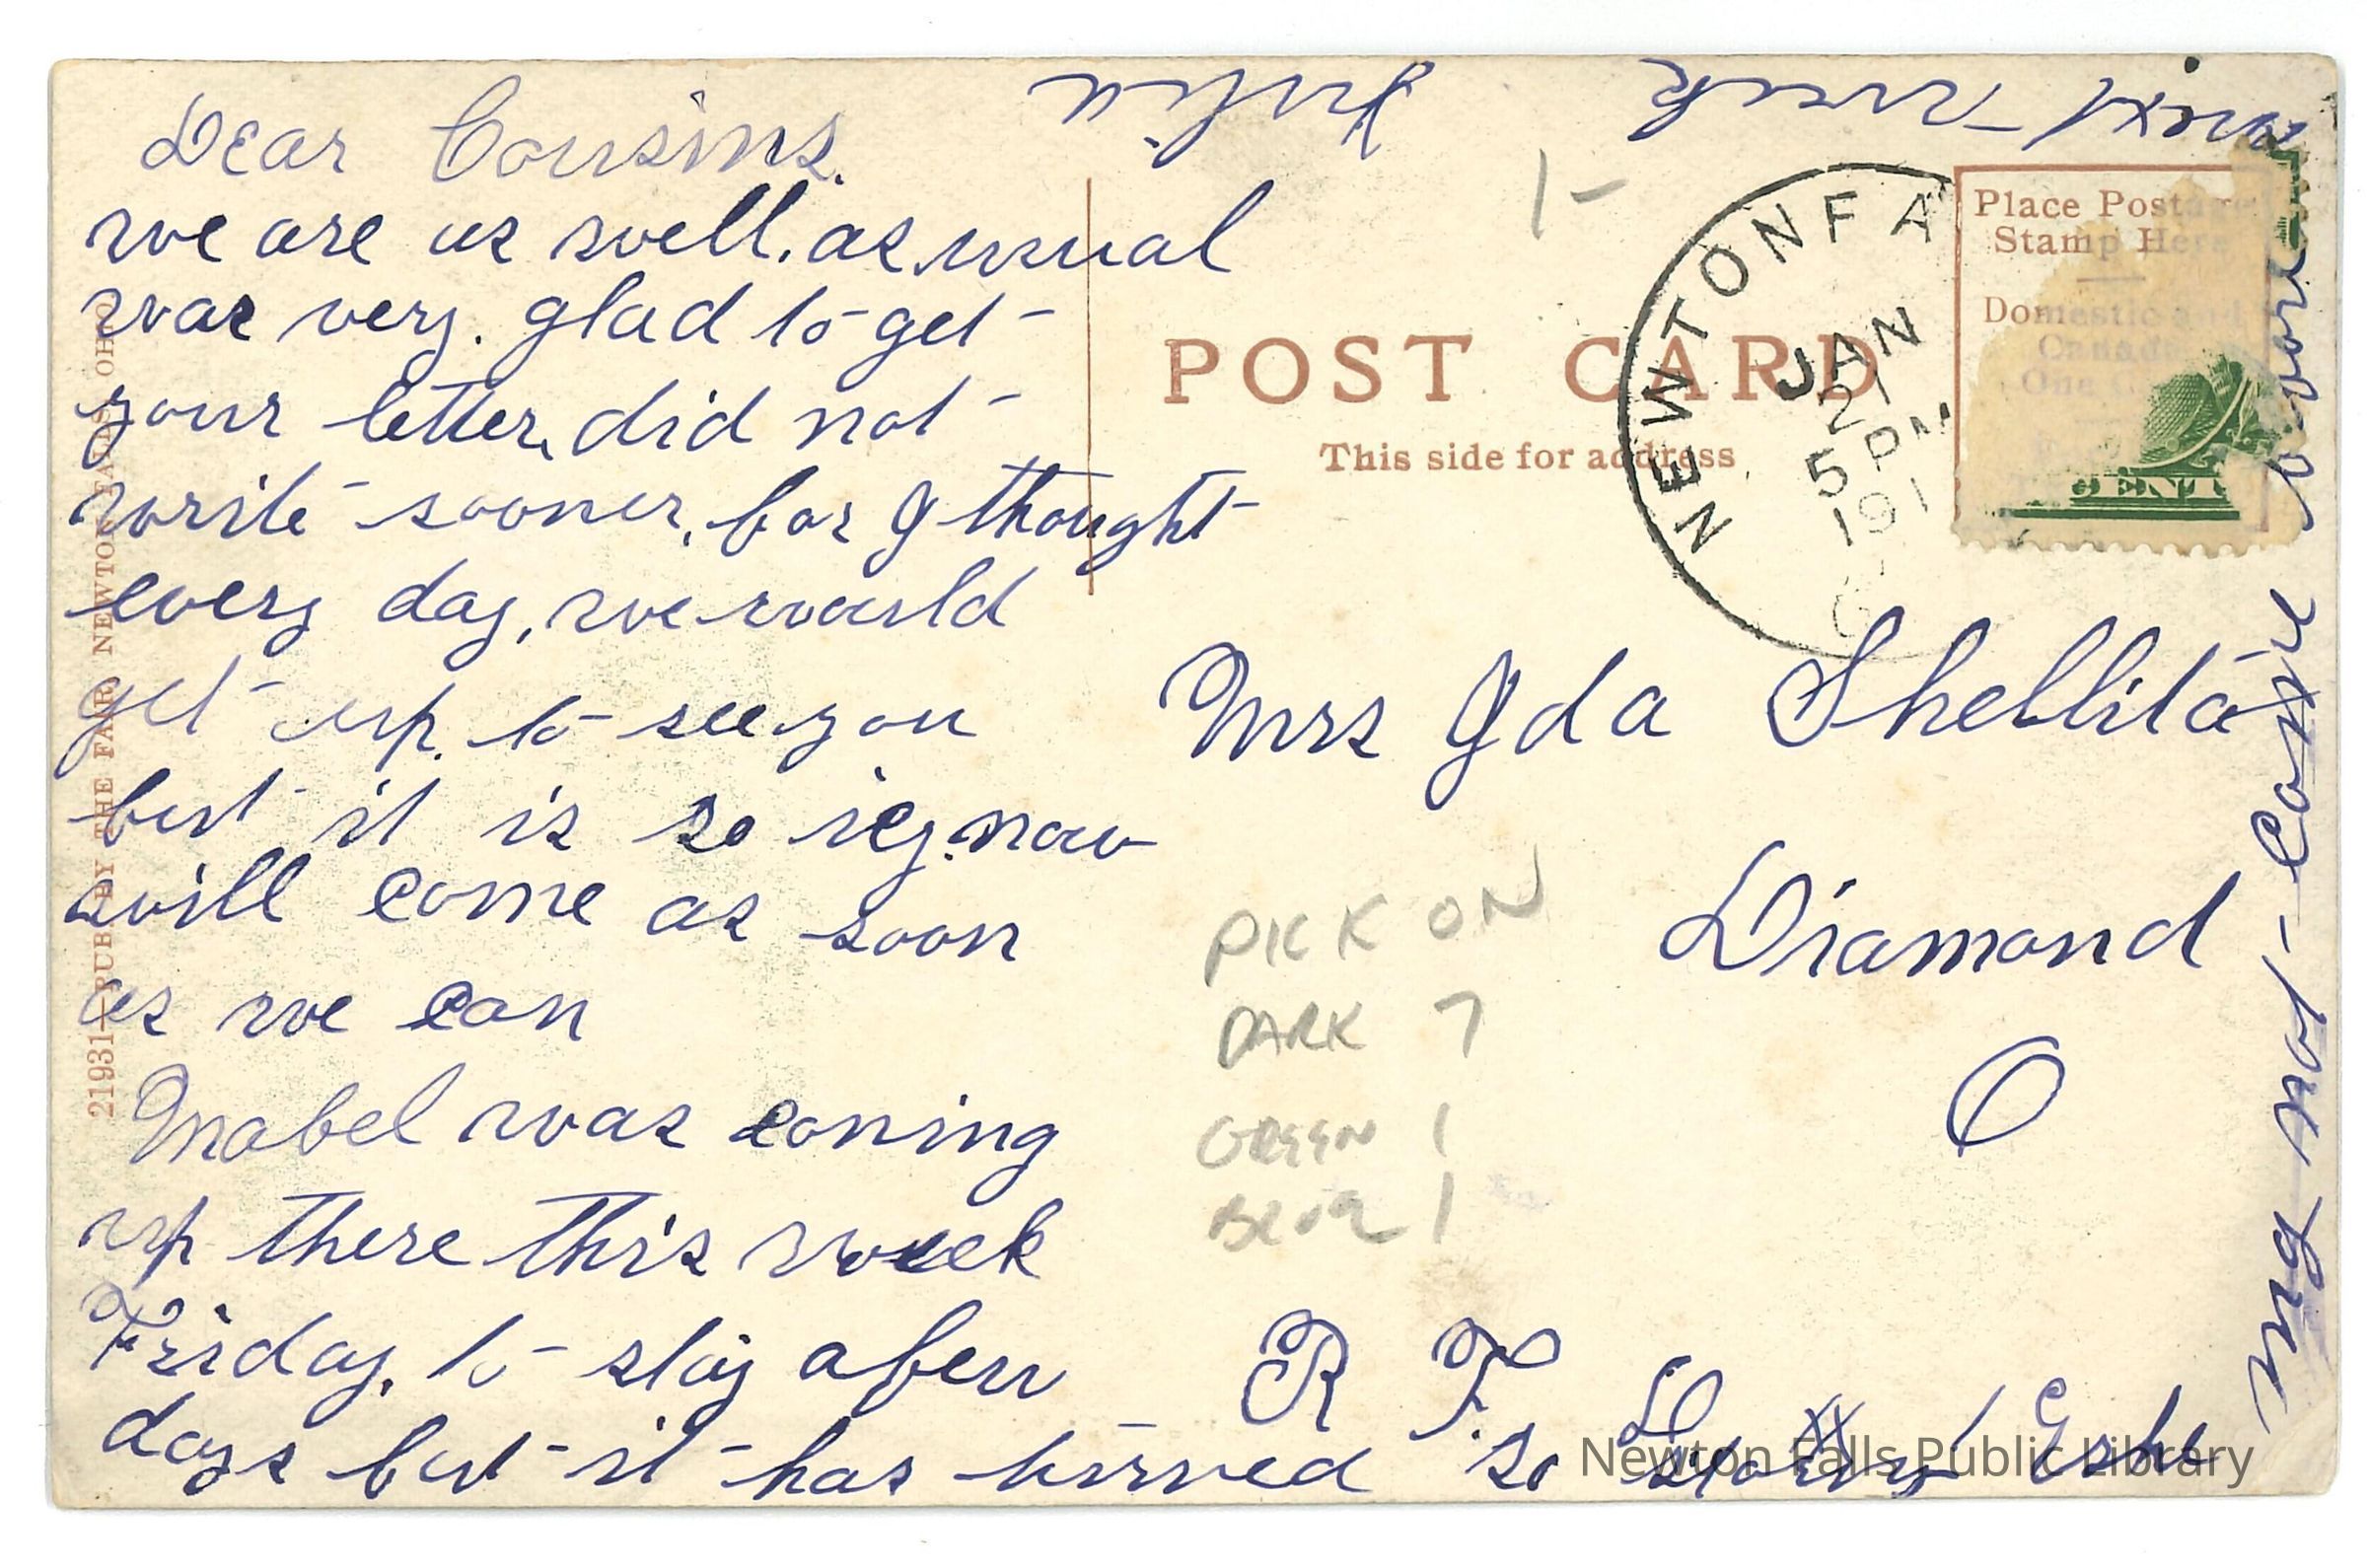 Dear Cousins.
we are as well. as usual
was very. glad to get
your letter, did not
write sooner, for I thought
every day, we would
get up. to see you
but it is so icy. now
will come as soon
as we can
Mabel was coming
up there this week
Friday, to stay a few
days but it has turned so stormy she
may not come
next week Julia
POST CARD
This side for address
NEWTON FA
JAN
21
5 PM
191
Place Postage
Stamp Here
Domestic and
Canada
One
CENT
Mrs Ida Shellito
Diamond
O
R F D # 1
1-
PICK ON
DARK 7
GREEN 1
1
21931-PUB. BY THE FAIR NEWTON FALLS, OHIO
Newton Falls Public Library